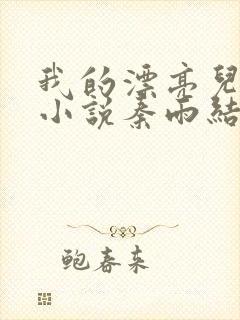 我的漂亮兒
小说秦雨結
鲍春来